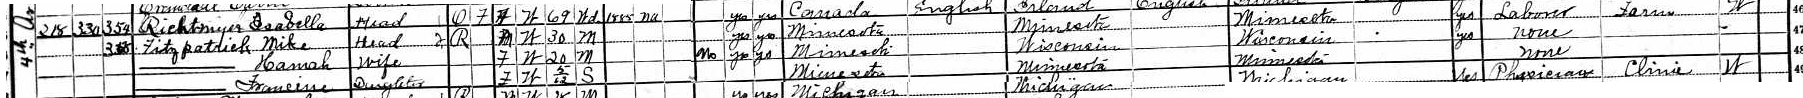 218 330 354 Richtmyer Isabella Head O 7 F W 69 Wd 1885 Na yes yes Canada English Ireland English yes Laborer Farm W 46
Fitzpatrick Mike Head 2 R M W 30 M yes yes Minnesota Minnesota Minnesota yes none 47
Hannah Wife F W 20 M No yes yes Minnesota Wisconsin Wisconsin none 48
Francine Daughter F W 5/12 S Minnesota Minnesota Minnesota yes Physician Clinic W 49
M yes yes Michigan Michigan Michigan
4th Av